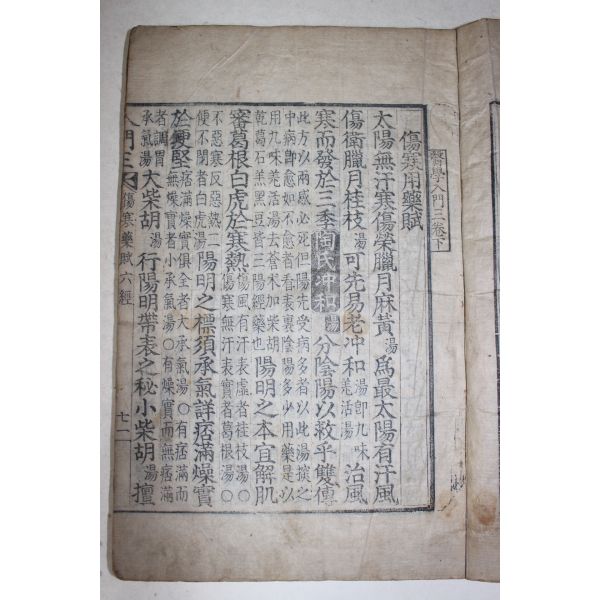 醫學入門三卷下
傷寒用藥賦
太陽無汗寒傷榮臘月麻黃湯爲最太陽有汗風
傷衛臘月桂枝湯可先易老冲和湯卽九味羌活湯治風
寒而發於三季陶氏冲和湯分陰陽以救乎雙傳
此方以兩感必死但陽先受病多者以此湯探之
中病卽愈如不愈者看表裏陰陽多少用藥是以
用九味羌活湯去蒼朮加柴胡
乾葛石羔黑豆
三陽經藥也
陽明之本宜解肌
審葛根白虎於寒熱
傷風有汗表虛者桂枝湯○
傷寒無汗表實者葛根湯○
不惡寒反惡熱二
便不閉者白虎湯
陽明之標須承氣詳痞滿燥實
於鞕堅
痞滿燥實俱全者大承氣湯○有痞滿而
無燥實者小承氣湯○有燥實而無痞滿
者調胃
承氣湯
大柴胡湯行陽明帶表之秘小柴胡湯擅
入門三
傷寒藥賦六經
七二